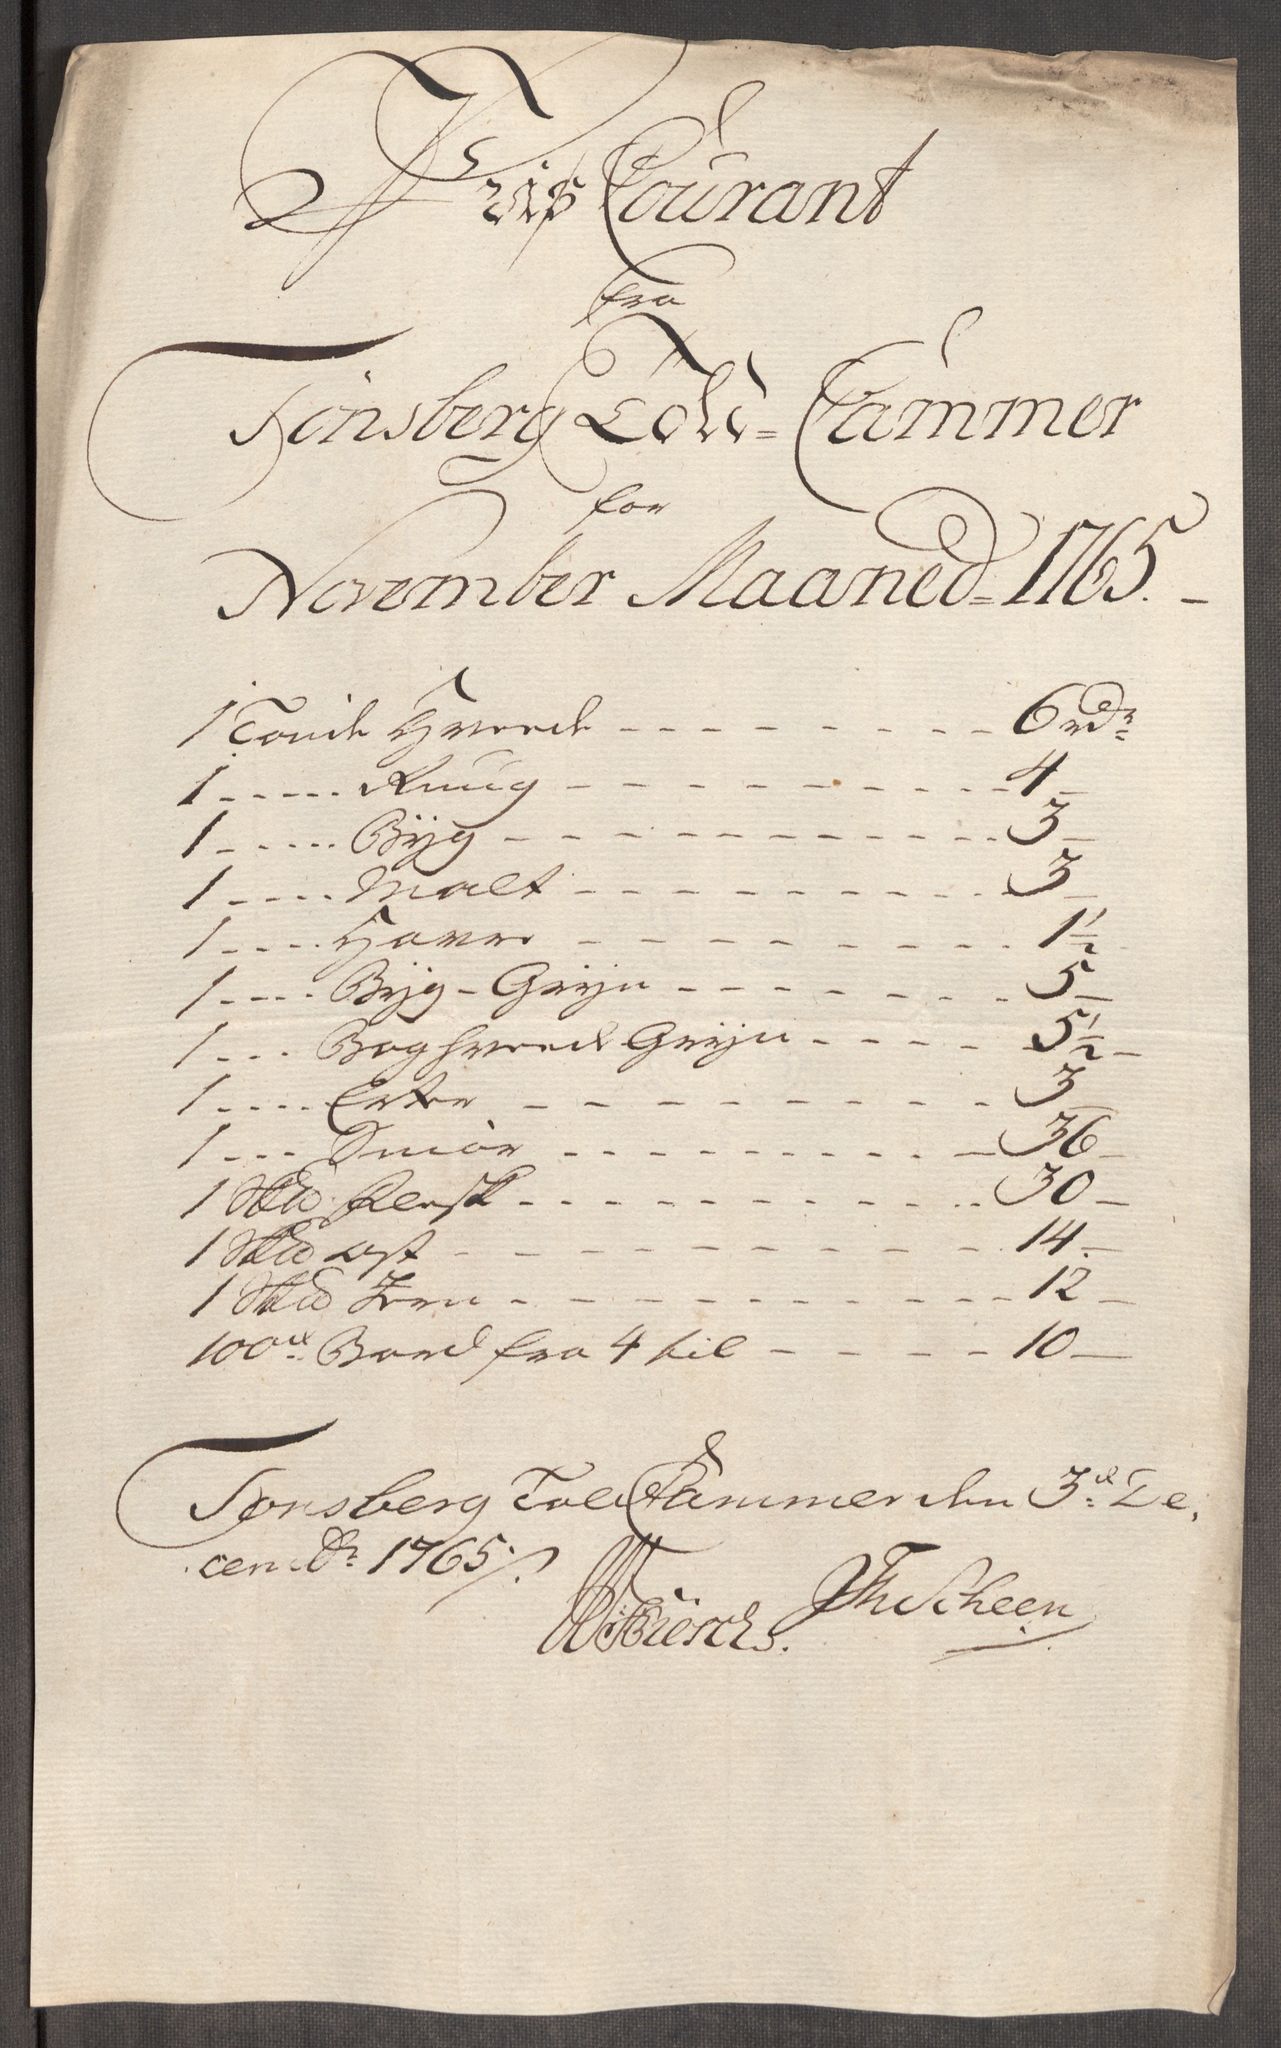 Priis Courant
fra
Tønsberg Told=Cammer
for
November Maaned=1765.
1 Tønde Hvede - - - - - - - - 6 rdr
1 ..... Ruug - - - - - - - - - 4 -
1 ..... Byg - - - - - - - - - - 3 -
1 ..... Malt - - - - - - - - - 3 -
1 ..... Havre - - - - - - - - 1 1/2
1 ..... Byg-Gryn - - - - - - - 5 -
1 ... Boghvede Gryn - - - - 5 1/2 -
1 ..... Erter - - - - - - - - - 3
1 ... Smør - - - - - - - - - 36 -
1 Skd Flersk - - - - - - - - - 30 -
1 Skd Ost - - - - - - - - - 14. -
1 Skd Jern - - - - - - - - - 12 -
100de Bord fra 4 til - - - - 10 -
Tønsberg Told Cammer den 3de De,
cembr 1765 ./.
Th Scheen